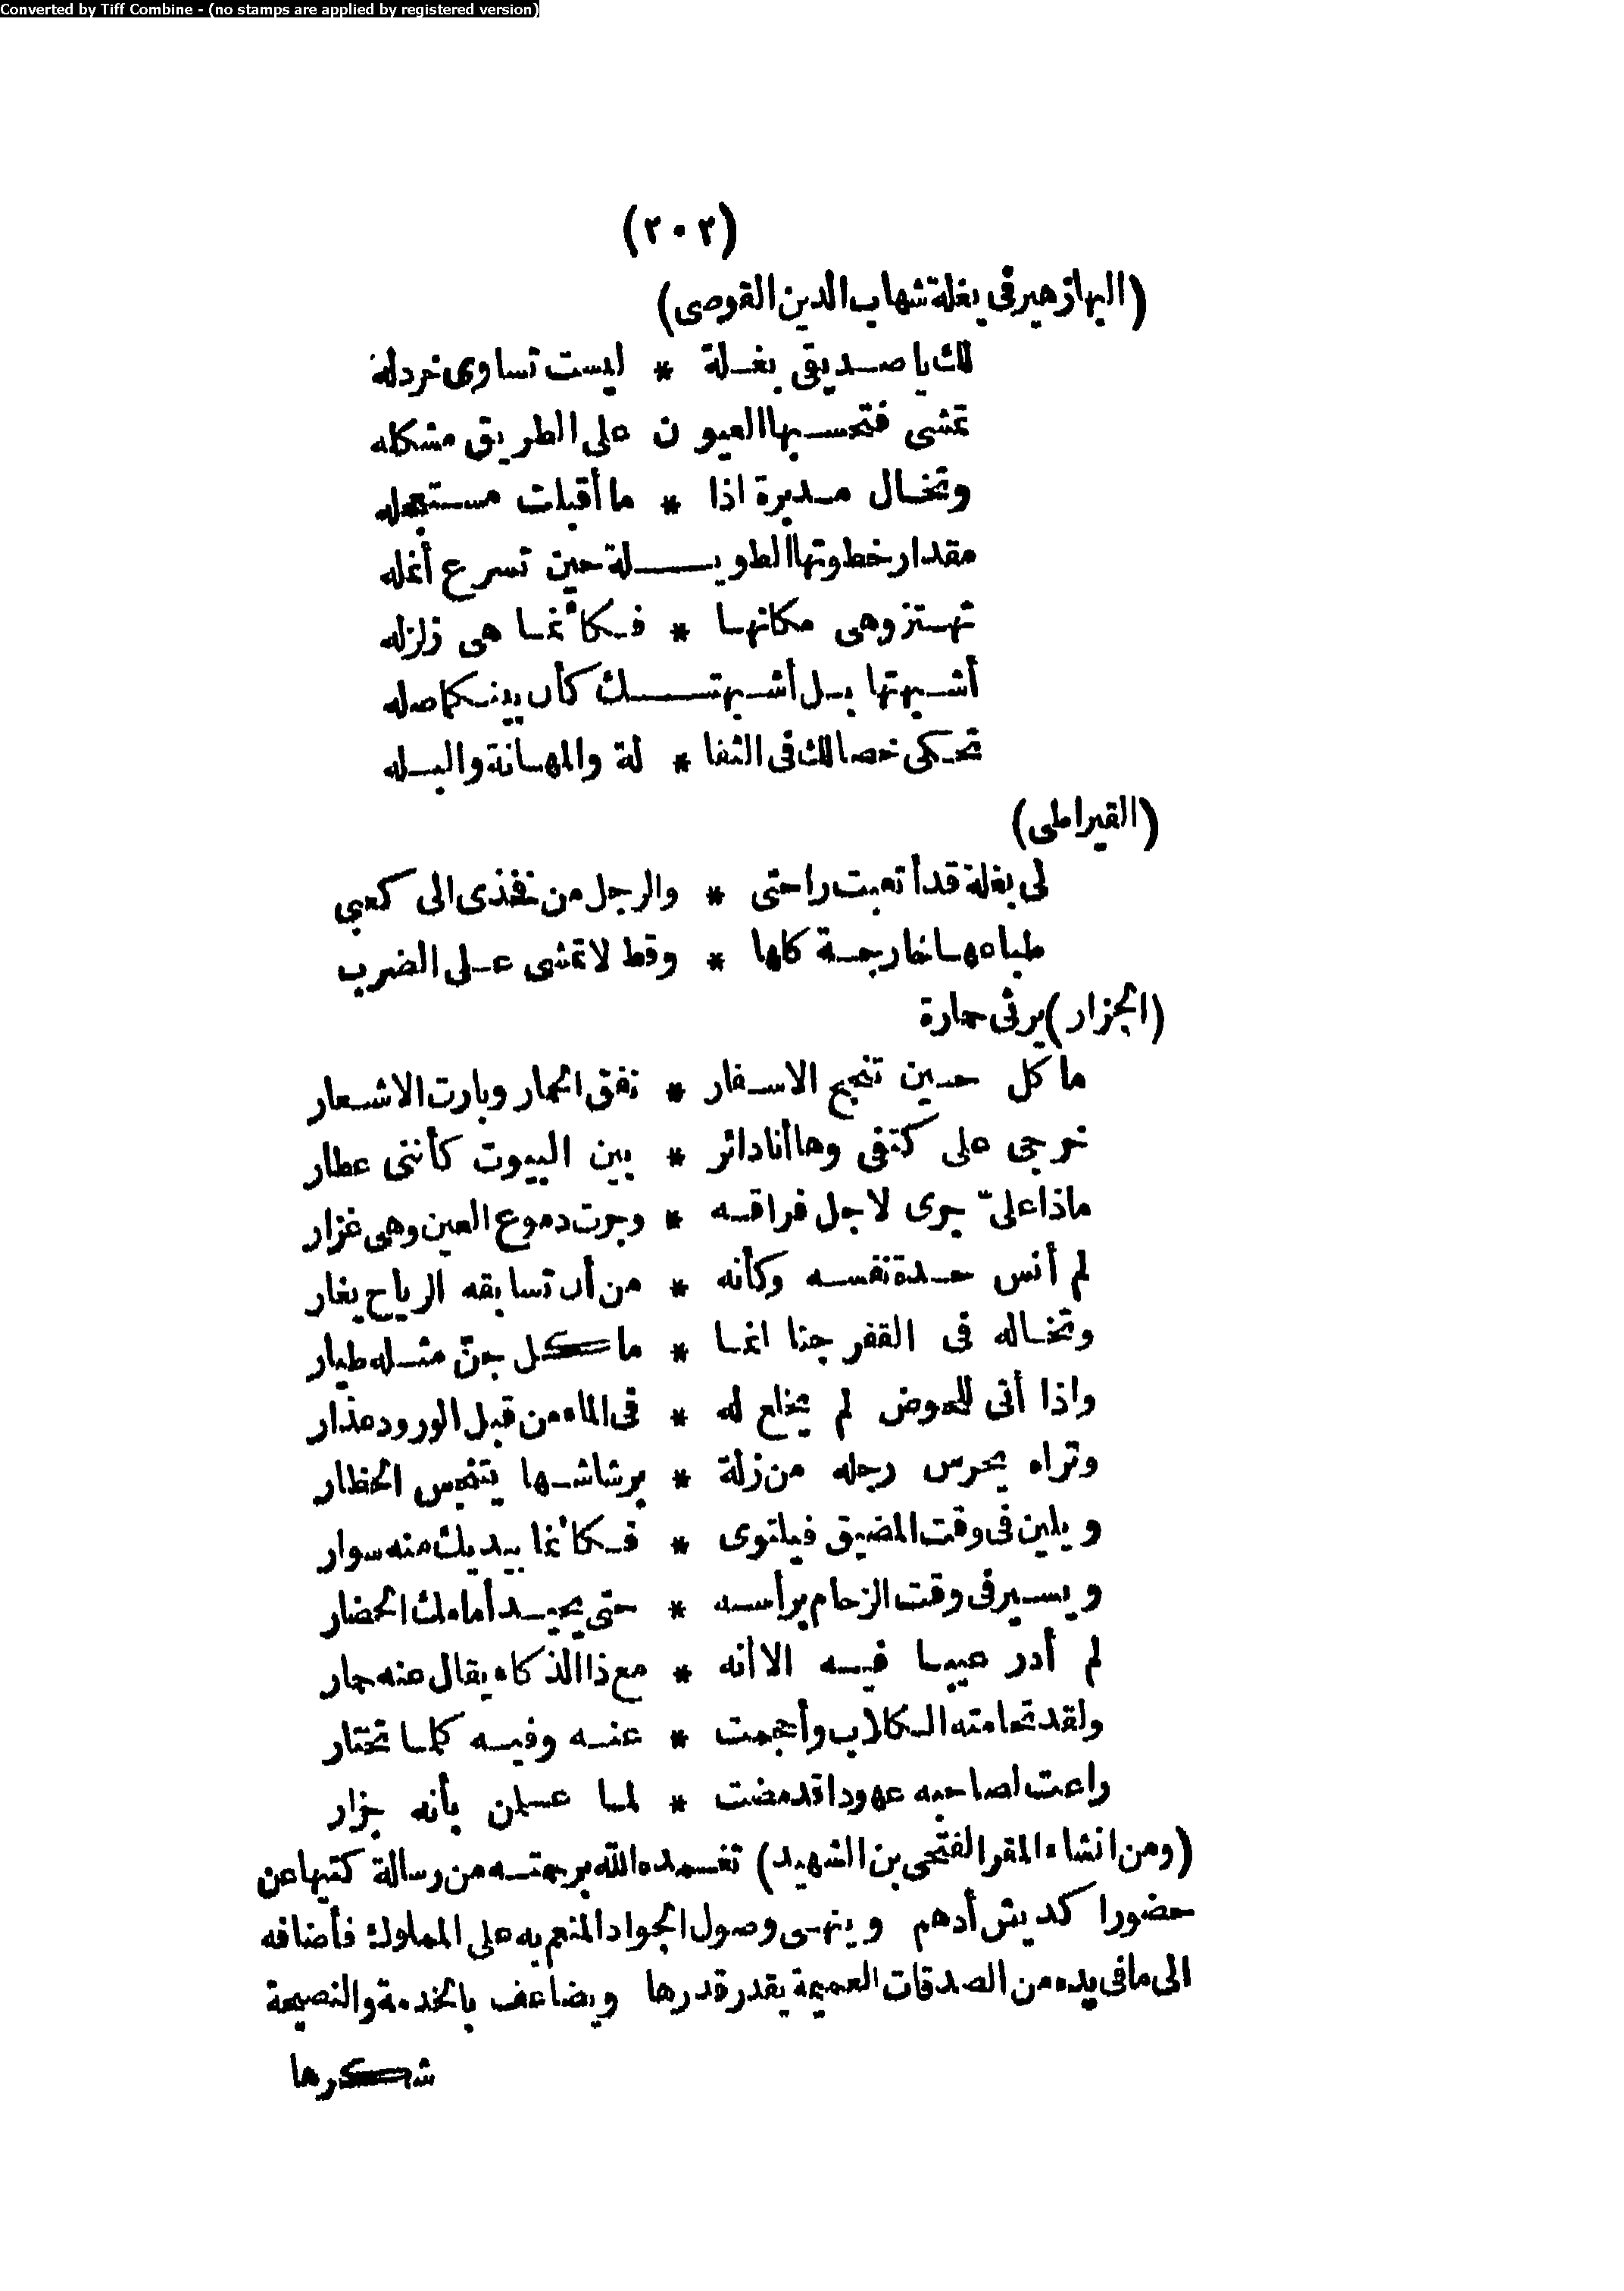 Converted by Tiff Combine - (no stamps are applied by registered version)
(٢٠٢)
(البهازهير فى بغلة شهاب الدين القوصى)
لك ياصديقى بغلة * ليست تساوى خردله
تمشى فتحسبها العيو ن على الطريق مشكله
وتخال مدبرة اذا * ما أقبلت مستعجله
مقدار خطوتها الطويلة حين تسرع أنمله
تهتز وهى مكانها * فكأنما هى زلزله
أشبهتها بل أشبهتك كأن بينكما صله
تحكى خصالك فى الثقا * لة والمهانة والبله
(القيراطى)
لى بغلة قد أتعبت راحتى * والرجل من فخذى الى كعبي
طباعها خارجة كلها * وقط لا تمشى على الضرب
(الجزار) يرثى حمارة
ما كل حين تنجح الاسفار * نفق الحمار وبارت الاشعار
خرجى على كتفى وها أنا دائر * بين البيوت كأننى عطار
ماذا علىّ جرى لاجل فراقه * وجرت دموع العين وهى غزار
لم أنس حدة نفسه وكأنه * من أن تسابقه الرياح يغار
وتخاله فى القفر جنا انما * ما كل جنّ مثله طيار
واذا أتى للحوض لم يخلع له * فى الماء من قبل الورود عذار
وتراه يحرس رجله من زلة * برشاشها يتنجس الحظار
ويلين فى وقت المضيق فيلتوى * فكأنما بيديك منه سوار
ويسير فى وقت الزحام برأسه * حتى يحيد أمامك الحضار
لم أدر عيبا فيه الا أنه * مع ذا الذكاء يقال عنه حمار
ولقد تحامته الكلاب وأحجمت * عنه وفيه كلما تختار
راعت لصاحبه عهودا قد مضت * لما علمن بأنه جزار
(ومن انشاء المقر الفتحى بن الشهيد) تغمده الله برحمته من رسالة كتبها عن
حضورا كديش أدهم وينهى وصول الجواد المنعم به على المملوك فأضافه
الى ما فى يده من الصدقات العميمة بقدر قدرها ويضاعف بالخدمة والنصيحة
شكرها